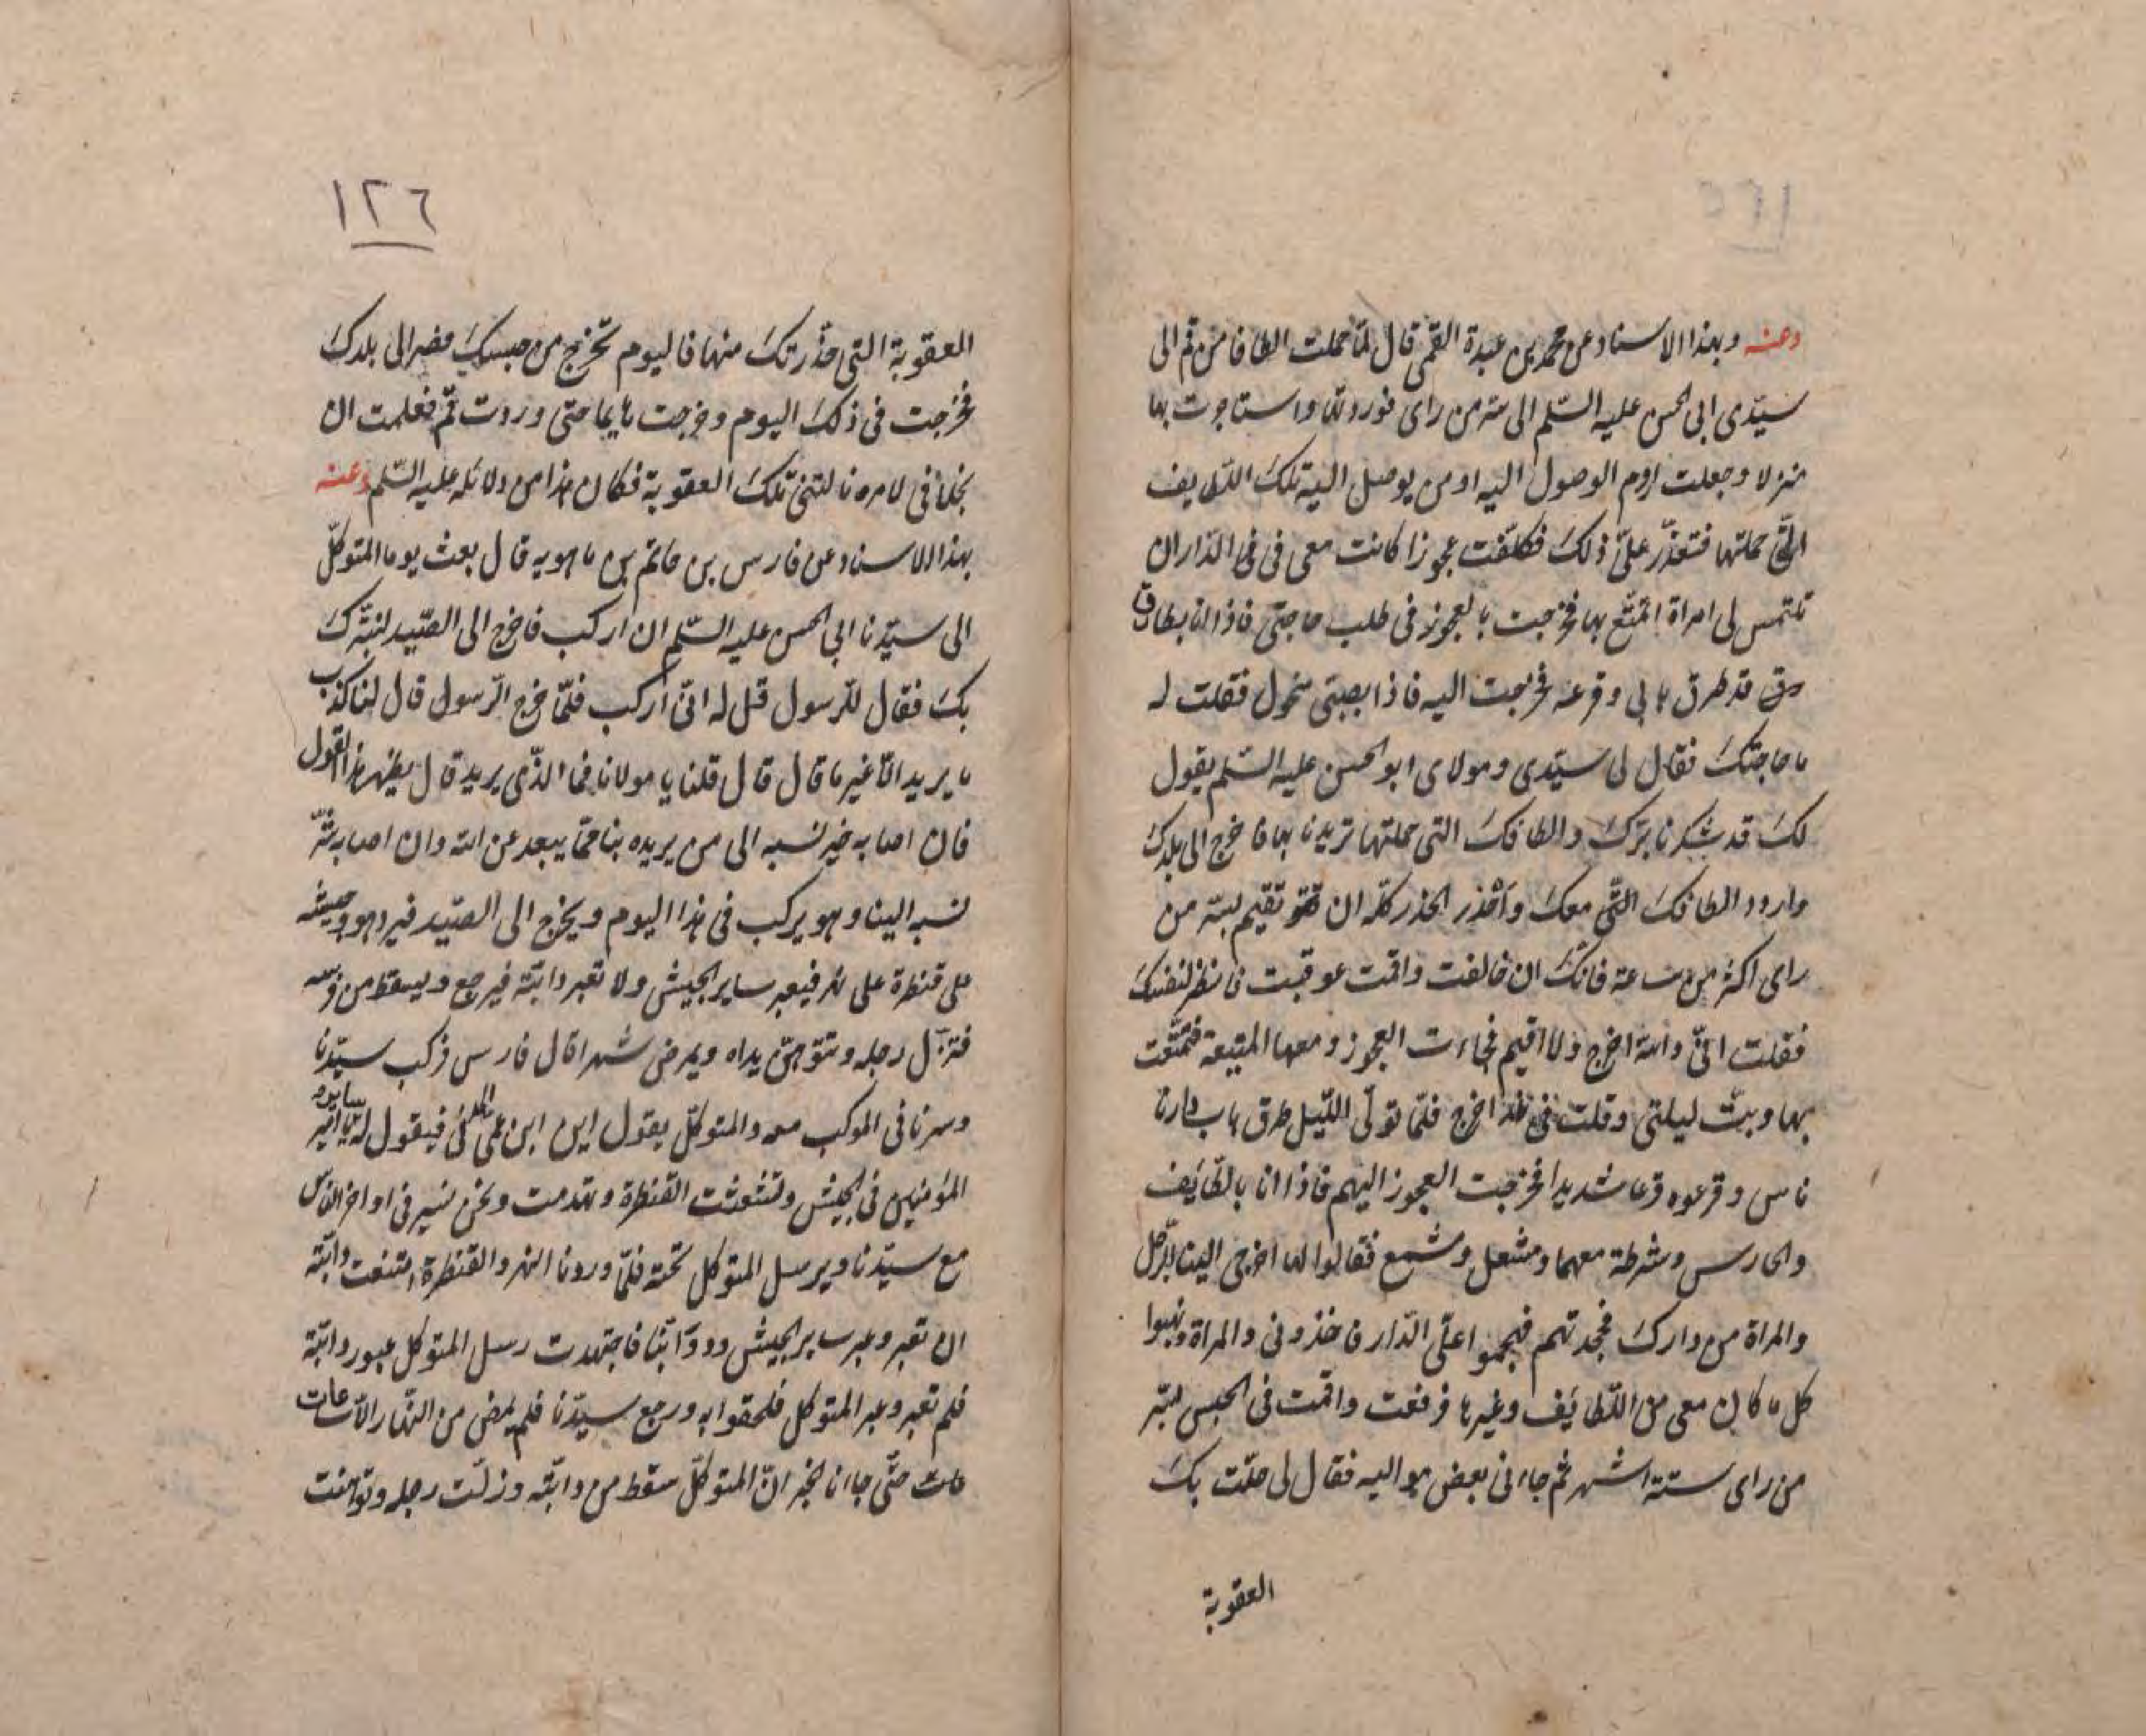 وعنه وبهذا الاسناد عن محمد بن عبدة القمى قال لمّا حملت الطافا من قم الى
سيّدى ابى الحسن عليه السّلم الى سر من راى فوردتها واستاجرت بها
منزلا وجعلت اروم الوصول اليه او من يوصل اليه تلك اللّطايف
الّتى حملتها فتعذّر علىّ ذلك فكلّفت عجوزا كانت معى فى فى الدّار ان
تلتمس لى امراة اتمتّع بها فخرجت بالعجوز فى طلب حاجتى فاذا انا بطارق
رق قد طرق بابى وقرعه فخرجت اليه فاذا بصبىّ منحول فقلت له
ما حاجتك فقال لى سيّدى ومولاى ابو الحسن عليه السّلم يقول
لك قد شكرنا برّك والطافك التى حملتها تريدنا بها فاخرج الى بلدك
واردد الطافك الّتى معك وأحذر الحذر كلّه ان تقيم بسر من
راى اكثر من ساعة فانّك ان خالفت واقمت عوقبت فانظر لنفسك
فقلت انّى والله اخرج ولا اقيم فجاءت العجوز ومعها المتيعة فتمتّعت
بها وبتّ ليلتى وقلت فى غد اخرج فلمّا تولّى اللّيل طرق باب دارنا
ناس وقرعوه قرعا شديدا فخرجت العجوز اليهم فاذا انا بالطّايف
والحارس وشرطة معهما ومشعل وشمع فقالوا لها اخرجى الينا الرّجل
والمراة من دارك فجحدتهم فهجموا على الدّار فاخذونى والمراة ونهبوا
كل ما كان معى من اللّطايف وغيرها فرفعت واقمت فى الحبس بسّر
من راى ستة اشهر ثم جاانى بعض مواليه فقال لى حلّت بك
العقوبة
١٢٦
العقوبة التى حذّرتك منها فاليوم تخرج من حبسك فصر الى بلدك
فخرجت فى ذلك اليوم وخرجت هايما حتى وردت قم فعلمت ان
بخلافى لامره نالتنى تلك العقوبة فكان هذا من دلائله عليه السّلم وعنه
بهذا الاسناد عن فارس بن حاتم بن ماهويه قال بعث يوما المتوكّل
الى سيّدنا ابى الحسن عليه السّلم ان اركب فاخرج الى الصّيد لنتبرّك
بك فقال للرّسول قل له انّى اركب فلمّا خرج الرّسول قال لنا كذب
ما يريد الّا غير ما قال قال قلنا يا مولانا فما الذّى يريد قال يظهر هذا القول
فان اصابه خير نسبه الى من يريده بنا ممّا يبعد عن الله وان اصابه شرّ
نسبه الينا وهو يركب فى هذا اليوم ويخرج الى الصّيد فيرد هو وجيشه
على قنطرة على نهر فيعبر ساير الجيش ولا تعبر دابّته فيرجع ويسقط من فرسه
فتزلّ رجله وتتوهّن يداه ويمرض شهرا قال فارس فركب سيّدنا
وسرنا فى الموكب معه والمتوكّل يقول اين ابن عمى المدنى فيقول له ساير يا امير
المؤمنين فى الجيش وتشعثت القنطرة وتهدمت ونحن نسير فى اواخر النّاس
مع سيّدنا ويرسل المتوكل تحته فلمّا وردنا النهر والقنطرة امتنعت دابّته
ان تعبر وعبر ساير الجيش ودوابّنا فاجتهدت رسل المتوكل عبور دابّته
فلم تعبر وعبر المتوكل فلحقوا به ورجع سيّدنا فلم يمض من النّهار الّا ساعات
حتّى جاانا الخبر انّ المتوكّل سقط من دابّته وزلّت رجله وتوهنت